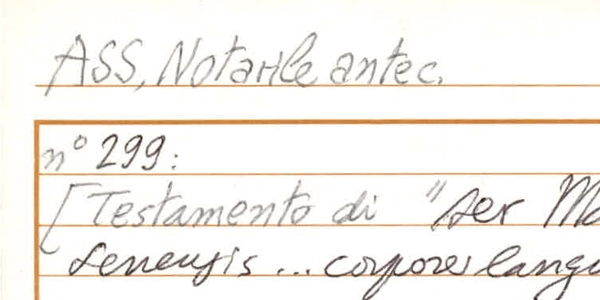 ASS, Notarile antec.
n° 299:
[Testamento di "ser
senensis ... corpore